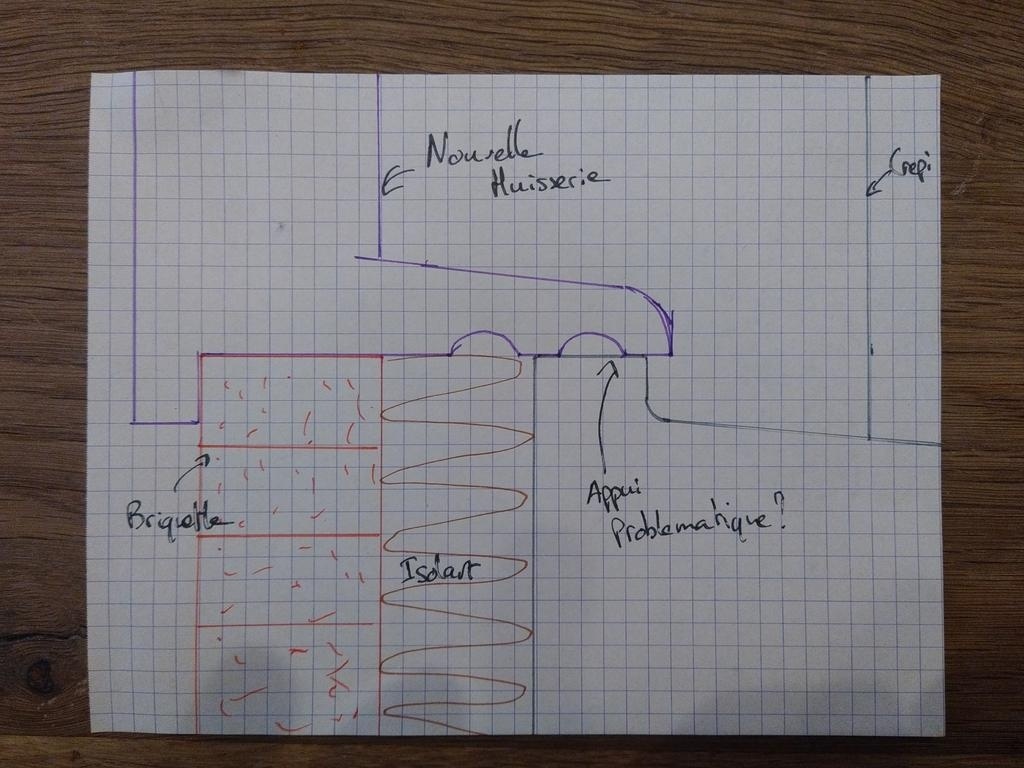 Nouvelle
Huisserie
Crepi
Briquette
Isolant
Appui
Problematique?